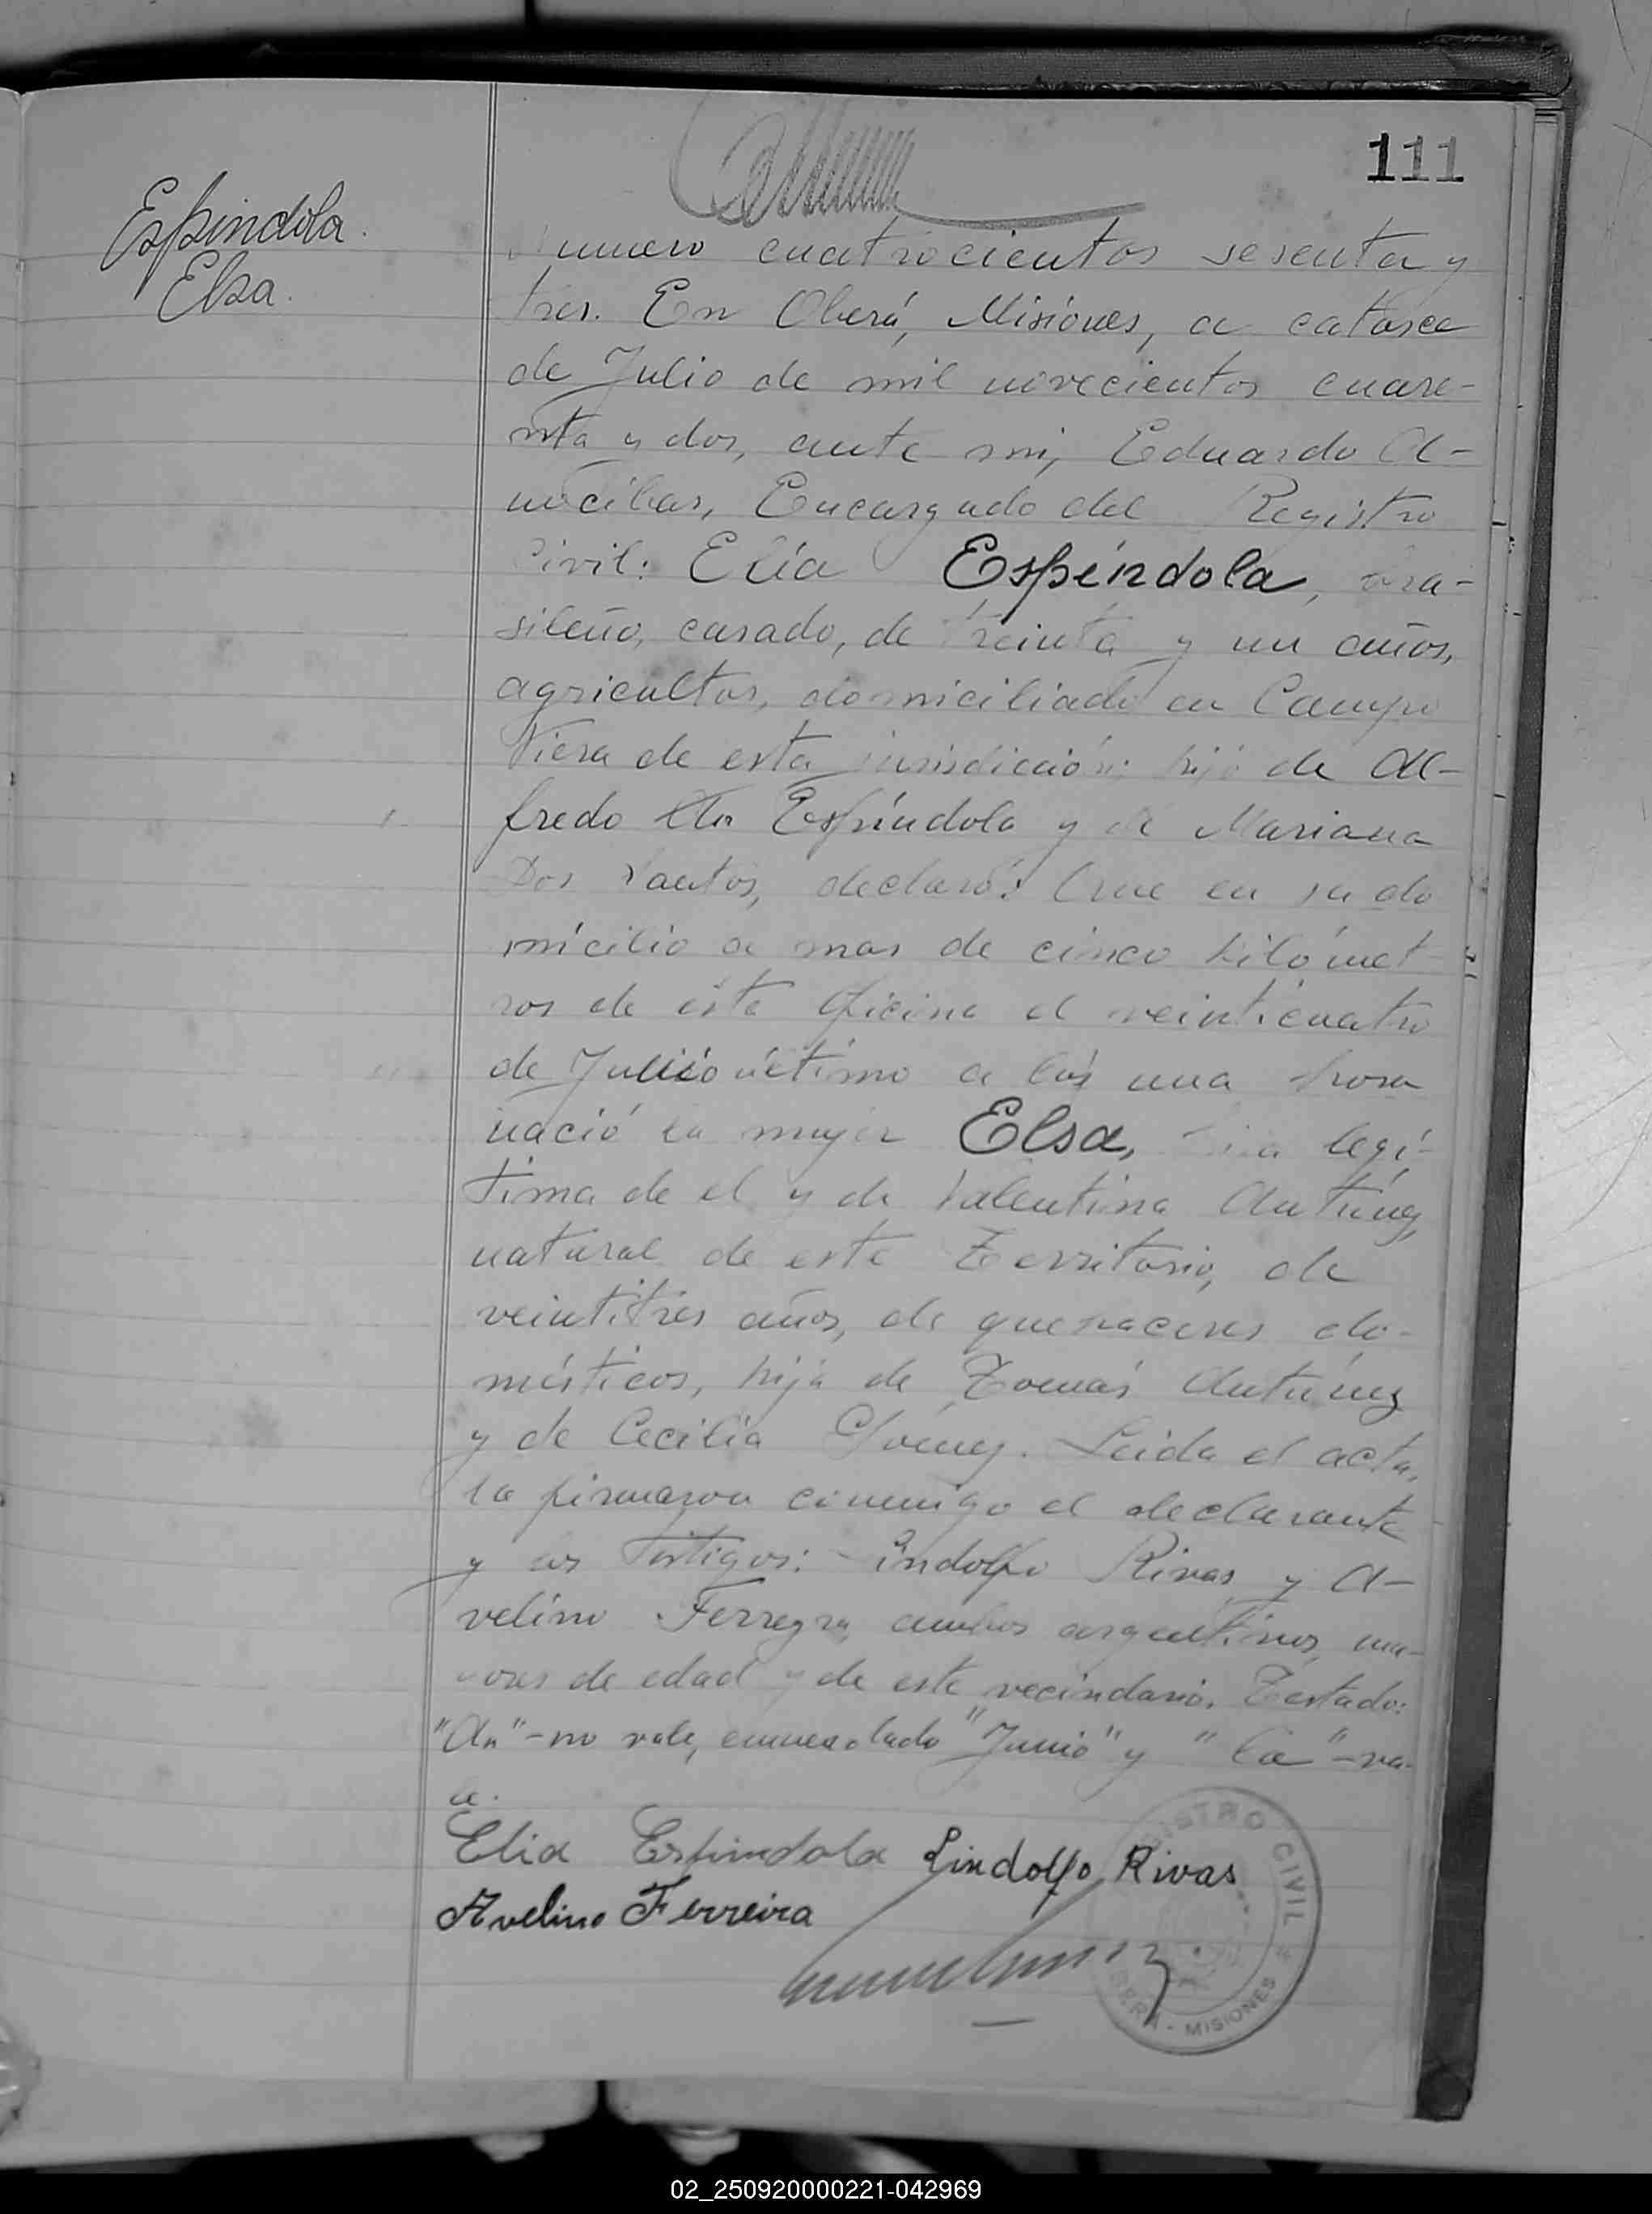 111
Espindola
Elsa.
Numero cuatrocientos sesenta y
tres. En Oberá, Misiónes, a catorce
de Julio de mil novecientos cuare-
nta y dos, ante mi, Eduardo A-
nocibar, Encargado del Registro
Civil: Elia Espíndola, bra-
sileño, casado, de treinta y un años,
agricultor, domiciliado en Campo
Viera de esta jurisdicción; hijo de Al-
fredo Espíndola y de Mariana
Dos Santos, declaró: Que en su do
micilio a mas de cinco kilómet-
ros de esta Oficina el veinticuatro
de Junio último a las una hora
nació la mujer Elsa, hija legí-
tima de el y de Valentina Antúnez,
natural de este Territorio, de
veintitres años, de quehaceres do-
mésticos, hija de Tomás Antúnez
y de Cecilia Gómez. Leida el acta,
la firmaron conmigo el declarante
y los testigos: Lindolfo Rivas y A-
velino Ferreyra, ambos argentinos, ma-
yores de edad y de este vecindario. Testado:
-no vale, enmendado "Junio" y "la"-va-
le.
Elia Espindola Lindolfo Rivas
Avelino Ferreira
REGISTRO CIVIL
OBERA - MISIONES
02_250920000221-042969